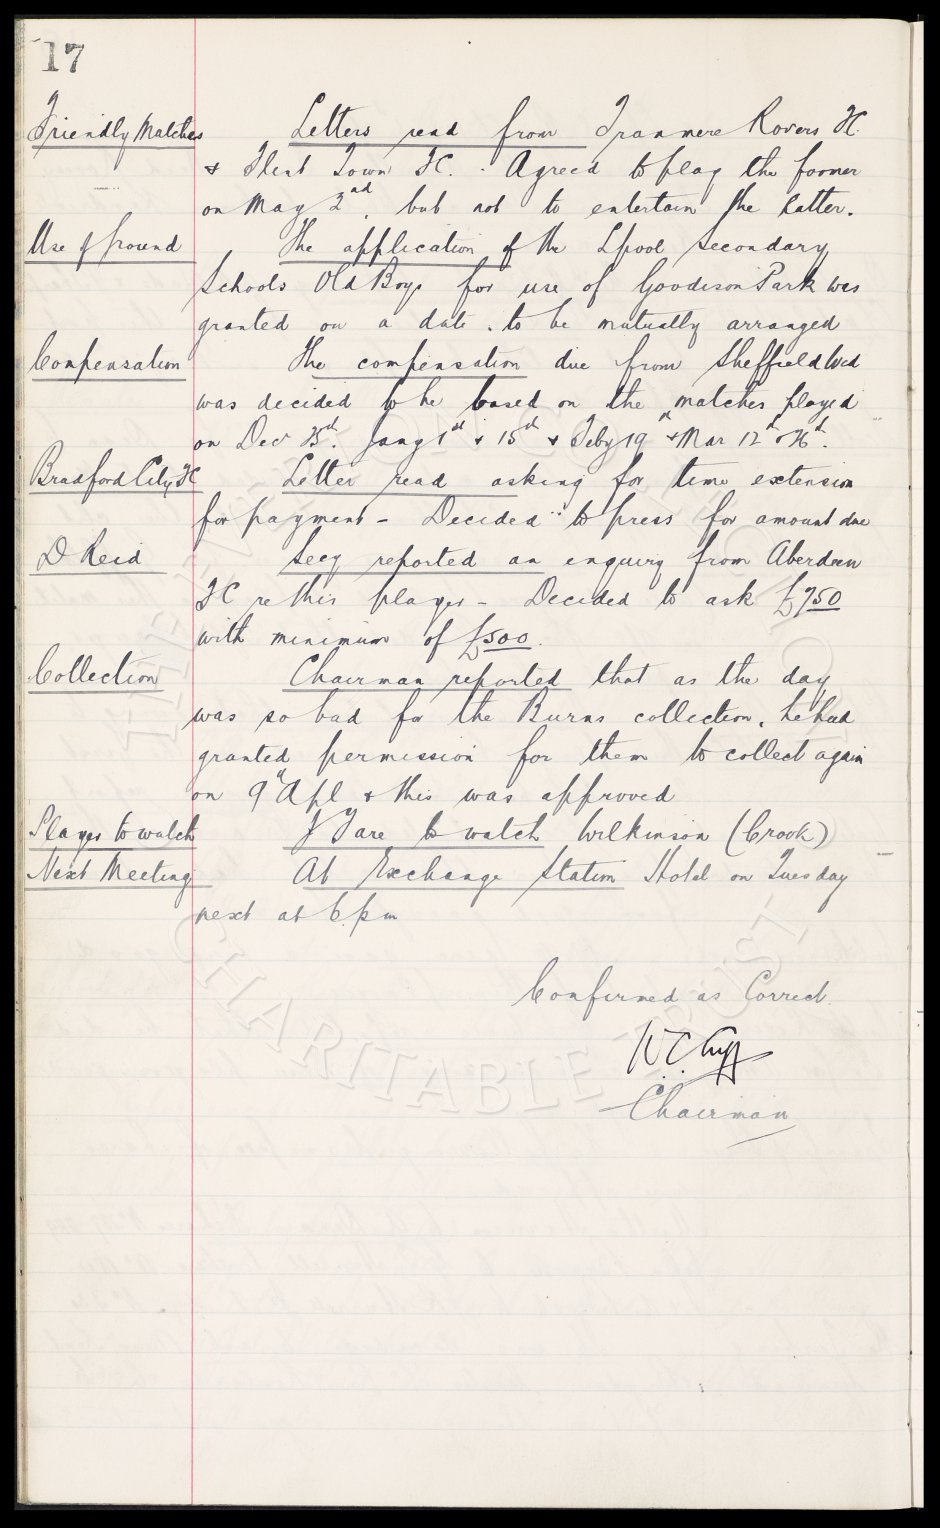 17
Friendly Matches Letters read from Tranmere Rovers FC
& Flint Town FC. Agreed to play the former
on May 2nd, but not to entertain the latter.
Use of Ground The application of the Lpool Secondary
Schools Old Boys for use of Goodison Park was
granted on a date to be mutually arranged
Compensation The compensation due from Sheffield Wed
was decided to be based on the matches played
on Dec 25th. Jany 1st & 15th & Feby 19th & Mar 12th & 26th.
Bradford City FC Letter read asking for time extension
for payment - Decided to press for amount due
D Reid Secy reported an enquiry from Aberdeen
FC re this player - Decided to ask £750
with minimum of £500.
Collection Chairman reported that as the day
was so bad for the Burns collection, he had
granted permission for them to collect again
on 9th Apl & this was approved
Player to watch J Fare to watch Wilkinson (Crook)
Next Meeting At Exchange Station Hotel on Tuesday
next at 6 pm
Confirmed as Correct.
W.C. Cuff
Chairman
THE EVERTON COLLECTION
CHARITABLE TRUST